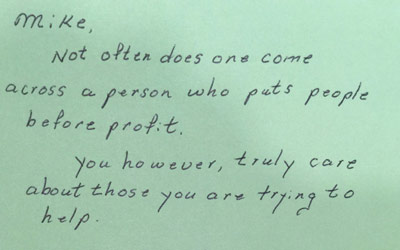 Mike,
Not often does one come
across a person who puts people
before profit.
You however, truly care
about those you are trying to
help.